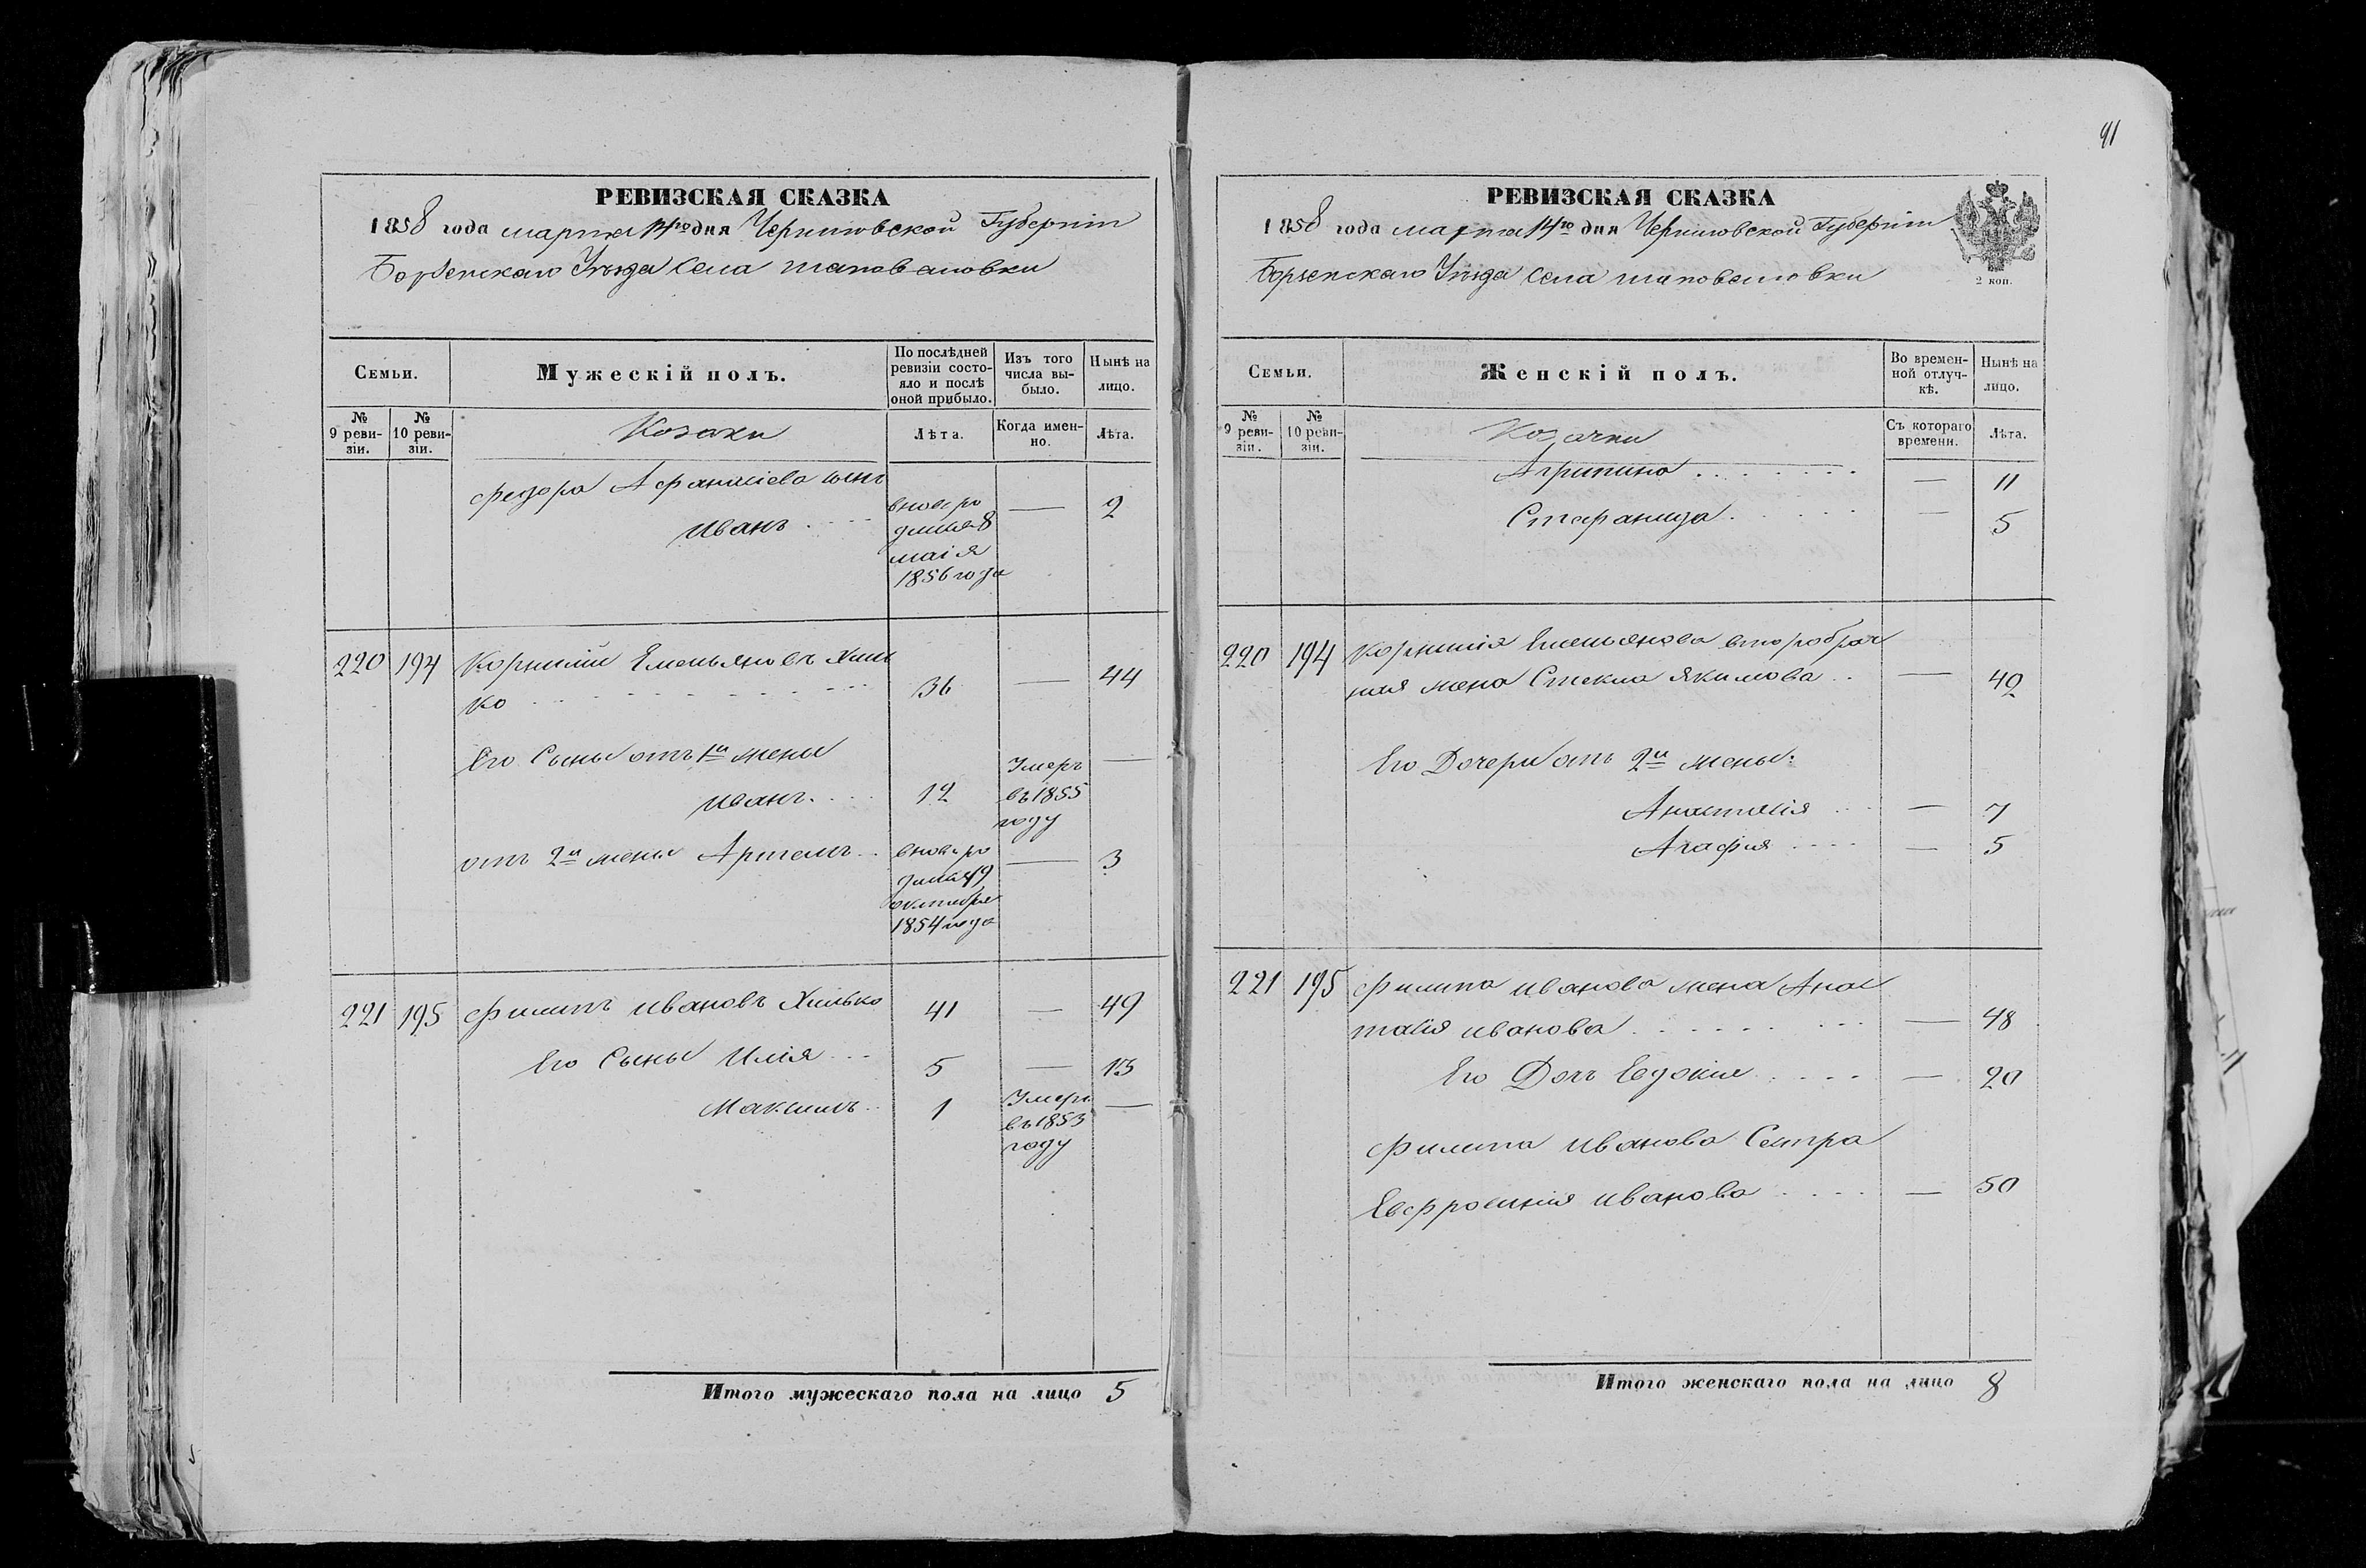 РЕВИЗСКАЯ СКАЗКА
1858 года марта 14го дня Черниговской Губерніи
Борзенскаго Уѣзда Села Шаповаловки
Семьи.
Мужескій полъ.
По послѣдней ревизіи состояло и послѣ оной прибыло.
Изъ того числа выбыло.
Ныне на лицо.
№ 9 ревизіи.
№ 10 ревизіи.
Козаки
Лѣта.
Когда именно.
Лѣта.
Федора Афанасіева сынъ
Иванъ . . . . вновь ро — 2
8
маія
1856 года
220 194 Корнилій Емельяновъ Хиль
ко . . . . 36 — 44
Его Сыны отъ 1й жены
Иванъ . . . . 12 Умеръ —
въ 1855
году
отъ 2й жены . . вновь ро — 3
октября
1854 года
221 195 Филипъ Ивановъ Хилько 41 — 49
Его Сыны Илія . . . 5 — 13
Максимъ . . 1 Умеръ —
въ 1853
году
Итого мужескаго пола на лицо 5
91
РЕВИЗСКАЯ СКАЗКА
1858 года марта 14го дня Черниговской Губерніи
Борзенскаго Уѣзда Села Шаповаловки
2 коп.
Семьи.
Женскій полъ.
Во временной отлучкѣ.
Нынѣ на лицо.
№ 9 ревизіи.
№ 10 ревизіи.
Козачки
Съ котораго времени.
Лѣта.
Агрипина . . . . — 11
Стефанида . . . . — 5
220 194 Корнилія Емельянова второбрач
ная жена Стекла Якимова . . — 42
Его Дочери отъ 2й жены:
Анастасія . . . — 7
Агафія . . . . — 5
221 195 Филипа Иванова жена Анас
тасія Иванова . . . . — 48
Его Дочь Евдокія . . . . — 20
Филипа Иванова Сестра
Евфросинія Иванова . . . . — 50
Итого женскаго пола на лицо 8